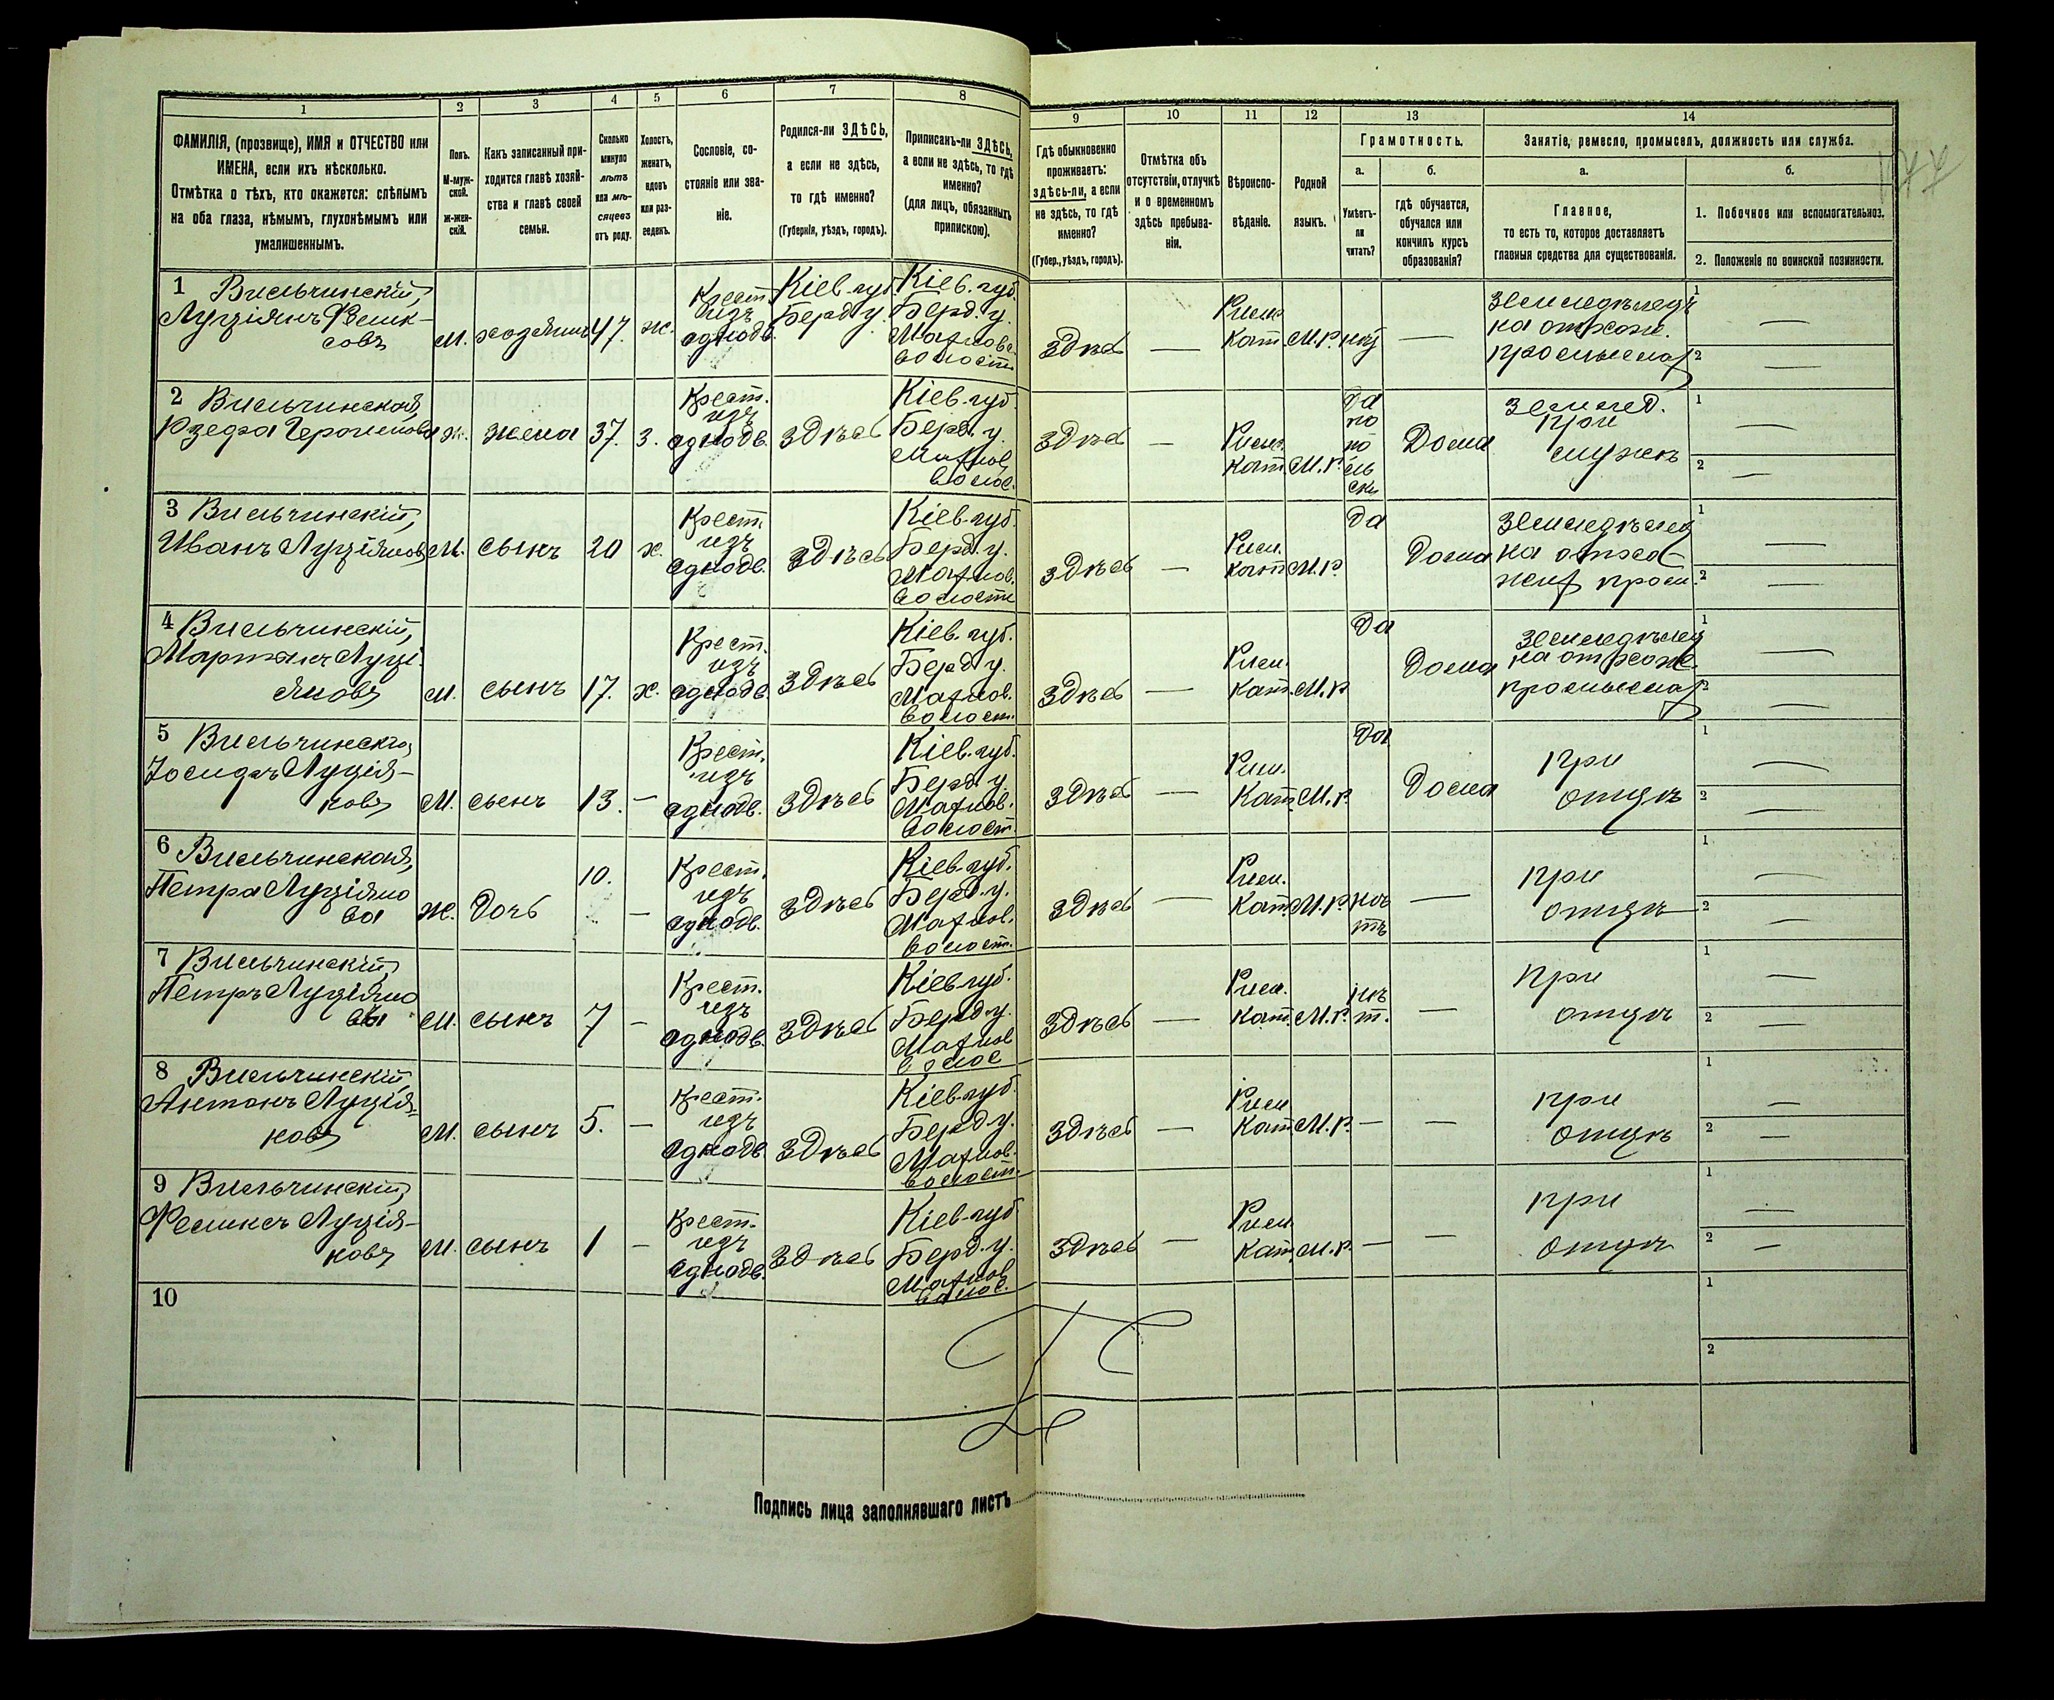 1
2
3
4
5
6
7
8
9
10
11
12
13
14
ФАМИЛІЯ, (прозвище), ИМЯ и ОТЧЕСТВО или
ИМЕНА, если ихъ нѣсколько.
Отмѣтка о тѣхъ, кто окажется: слѣпымъ
на оба глаза, нѣмымъ, глухонѣмымъ или
умалишеннымъ.
Полъ.
М-муж-
ской.
Ж-жен-
скій.
Какъ записанный при-
ходится главѣ хозяй-
ства и главѣ своей
семьи.
Сколько
минуло
лѣтъ
или мѣ-
сяцевъ
отъ роду.
Холостъ,
женатъ,
вдовъ
или раз-
веденъ.
Сословіе, со-
стояніе или зва-
ніе.
Родился-ли ЗДѢСЬ,
а если не здѣсь,
то гдѣ именно?
(Губернія, уѣздъ, городъ).
Приписанъ-ли ЗДѢСЬ,
а если не здѣсь, то гдѣ
именно?
(для лицъ, обязанныхъ
припискою).
Гдѣ обыкновенно
проживаетъ:
здѣсь-ли, а если
не здѣсь, то гдѣ
именно?
(Губер., уѣздъ, городъ).
Отмѣтка объ
отсутствіи, отлучкѣ
и о временномъ
здѣсь пребыва-
ніи.
Вѣроиспо-
вѣданіе.
Родной
языкъ.
Грамотность.
а.
Умѣетъ-
ли
читать?
б.
гдѣ обучается,
обучался или
кончилъ курсъ
образованія?
Занятіе, ремесло, промыселъ, должность или служба.
а.
Главное,
то есть то, которое доставляетъ
главныя средства для существованія.
б.
1. Побочное или вспомогательное.
2. Положеніе по воинской повинности.
1 Вильчинскій,
Луціянъ Феликсовъ
М. хозяинъ 47. ж.
Крест. изъ однодв.
Кіев. губ. Берд. у.
Кіев. губ. Берд. у. Махнов. волости
здѣсь —
Рим. Кат. М.Р. —
Земледѣлецъ
на отхож.
промыслах
1 —
2 —
2 Вильчинская,
Ж. жена 37. з.
Крест. изъ однодв.
здѣсь
Кіев. губ. Берд. у. Махнов. волос.
здѣсь —
Рим. Кат. М.Р.
да по польски
Дома
землед.
при
мужѣ
1 —
2 —
3 Вильчинскій,
Иванъ Луціяновъ
М. сынъ 20 х.
Крест. изъ однодв.
здѣсь
Кіев. губ. Берд. у. Махнов. волости
здѣсь —
Рим. Кат. М.Р.
да Дома
Земледѣлец
на отхо-
жих пром.
1 —
2 —
4 Вильчинскій,
Луціяновъ
М. сынъ 17. х.
Крест. изъ однодв.
здѣсь
Кіев. губ. Берд. у. Махнов. волост.
здѣсь —
Рим. Кат. М.Р.
да Дома
Земледѣлец
на отхож.
промыслах
1 —
2 —
5
Іосифъ Луція-
новъ
М. сынъ 13. —
Крест. изъ однодв.
здѣсь
Кіев. губ. Берд. у. Махнов. волост.
здѣсь —
Рим. Кат. М.Р.
Да Дома
при
отцѣ
1 —
2 —
6 Вильчинская,
Луціяно
ва
Ж. дочь 10. —
Крест. изъ однодв.
здѣсь
Кіев. губ. Берд. у. Махнов. волост.
здѣсь —
Рим. Кат. М.Р. нѣтъ —
при
отцѣ
1 —
2 —
7 Вильчинскій,
Петръ Луціяно
въ
М. сынъ 7 —
Крест. изъ однодв.
здѣсь
Кіев. губ. Берд. у. Махнов волос
здѣсь —
Рим. Кат. М.Р. нѣт. —
при
отцѣ
1 —
2 —
8 Вильчинскій,
Антонъ Луція-
новъ
М. сынъ 5. —
Крест. изъ однодв.
здѣсь
Кіев. губ. Берд. у. Махнов. волост.
здѣсь —
Рим Кат. М.Р. — —
при
отцѣ
1 —
2 —
9 Вильчинскій,
Феликсъ Луція-
новъ
М. сынъ 1 —
Крест. изъ однодв.
здѣсь
Кіев. губ Берд. у. Махнов волос.
здѣсь —
Рим Кат. М.Р. — —
при
отцѣ
1 —
2 —
10
1
2
Подпись лица заполнявшаго листъ